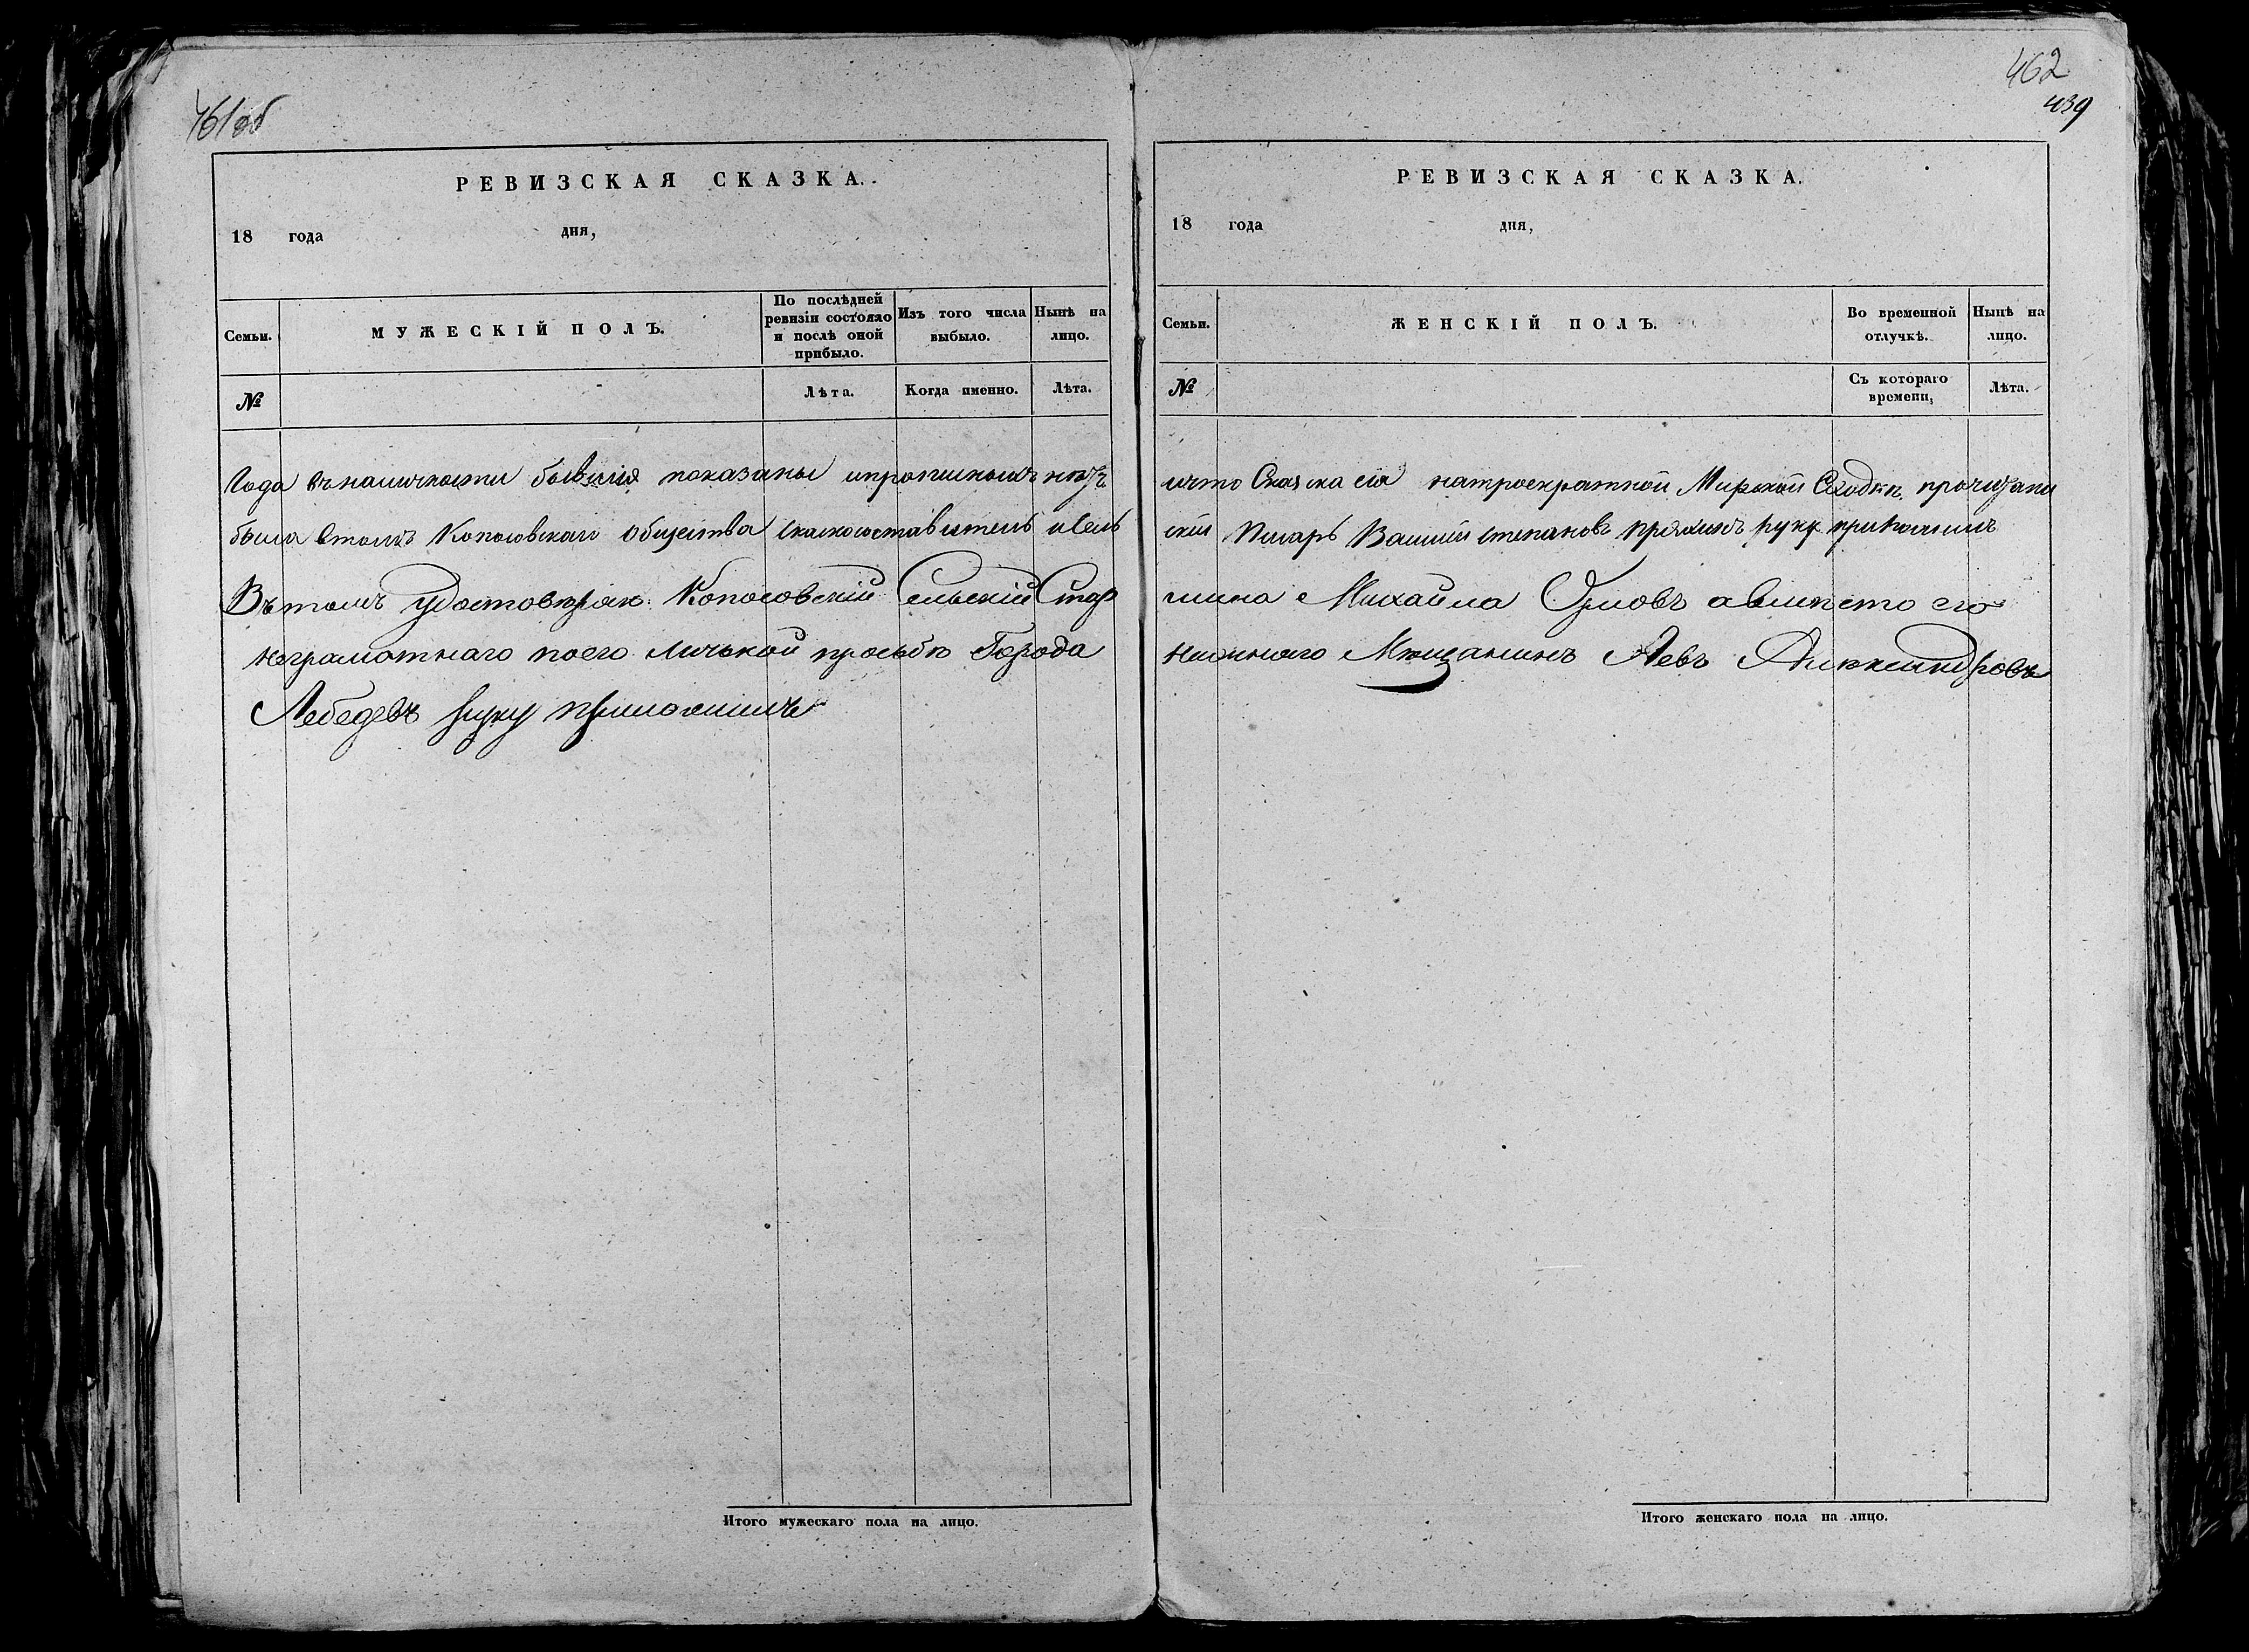 461об
РЕВИЗСКАЯ СКАЗКА.
18 года дня,
Семьи.
МУЖЕСКІЙ ПОЛЪ.
По послѣдней ревизіи состояло и послѣ оной прибыло.
Изъ того числа выбыло.
Нынѣ на лицо.
№
Лѣта.
Когда именно.
Лѣта.
Года въналичности бывшия показаны ипрописныхъ нѣтъ
была втомъ Копосовскаго общества скаскосоставитель исель
Въ томъ удостовѣряю Копосовскій Сельскій Стар
неграмотнаго поего личьной прозьбѣ Города
Лебедевъ руку приложилъ
Итого мужескаго пола на лицо.
462
439
РЕВИЗСКАЯ СКАЗКА.
18 года дня,
Семьи.
ЖЕНСКІЙ ПОЛЪ.
Во временной отлучкѣ.
Нынѣ на лицо.
№
Съ котораго времени,
Лѣта.
ичто Сказка сія натроекратной Мирской Сходкѣ прочитана
скій писарь Василий степановъ руку приложилъ
шина Михайла Орловъ авместо его
нижняго Мѣщанинъ Левъ Александровъ
Итого женскаго пола на лицо.